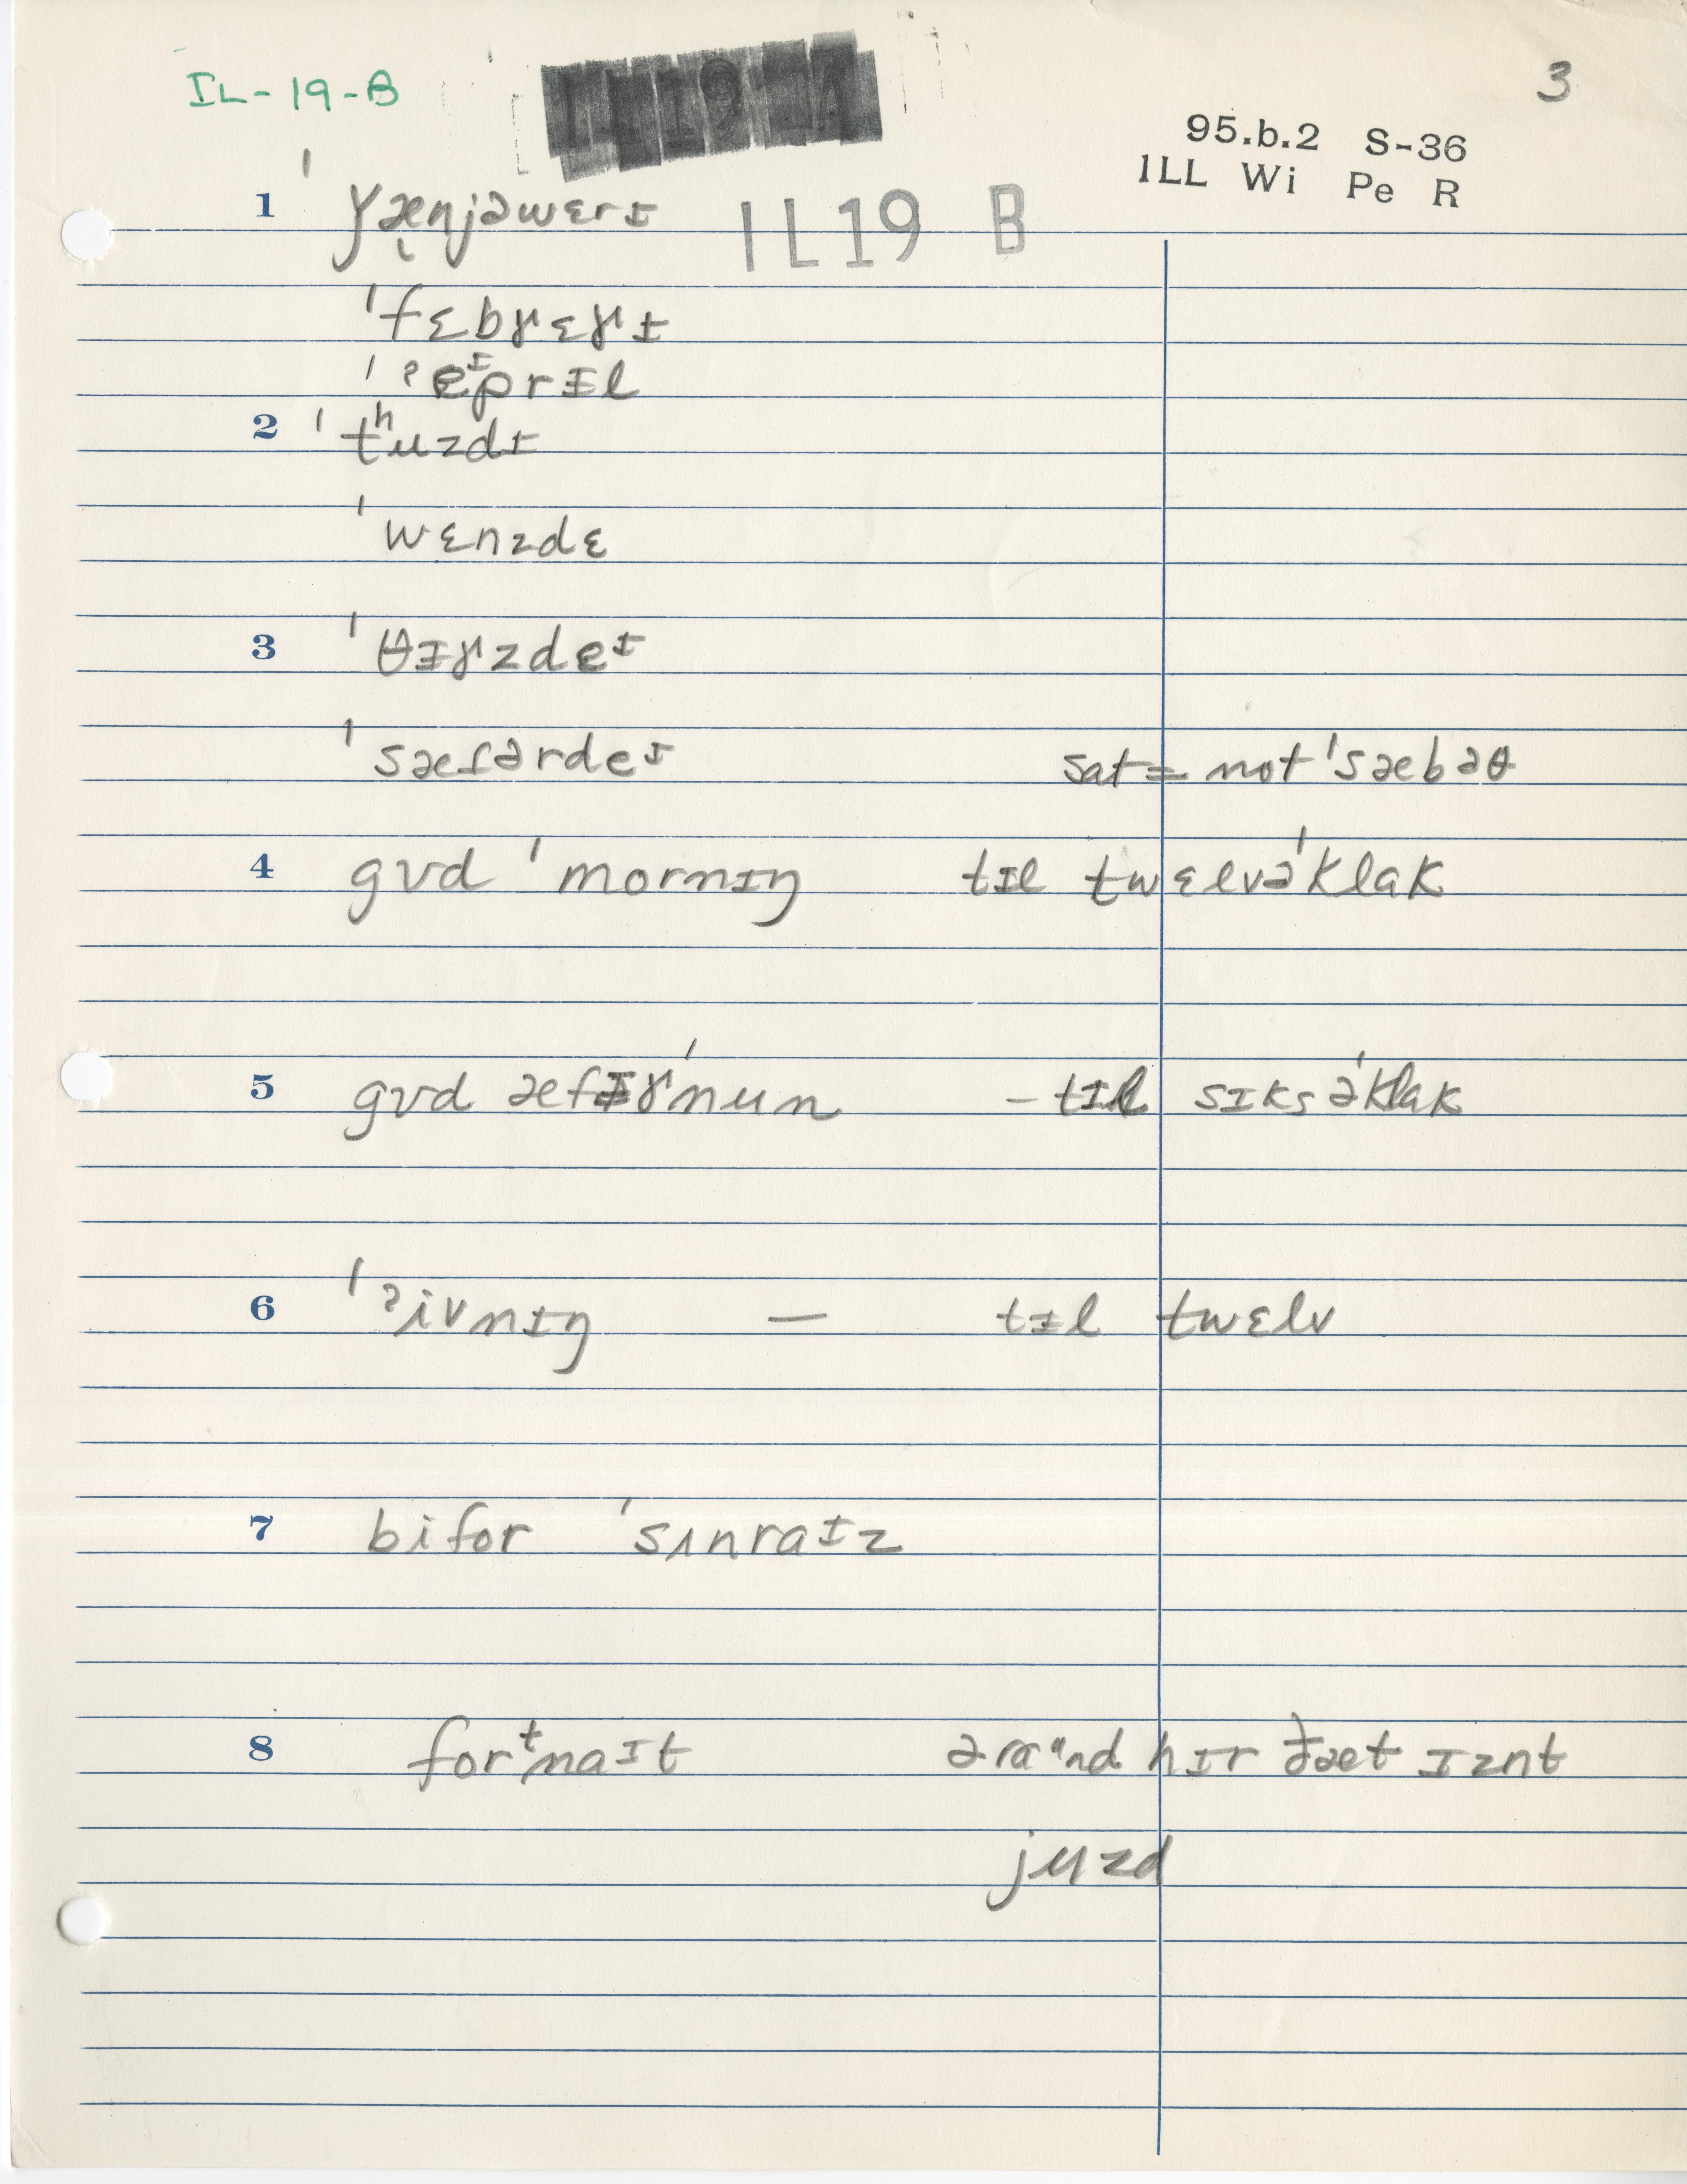 IL-19-B
3
95.b.2 S-36
1LL Wi Pe R
IL19 B
1 ˈɣæ̨njəwɛrɪ
ˈfɛbɤɛɤɪ
ˈʔeᴵprɪl
2 ˈtʰuzdɪ
ˈwɛnzdɛ
3 ˈθɪɤzdeᴵ
ˈsæɾərdeᴵ sat = not ˈsæbəθ
4 gʊd ˈmornɪŋ tɪl twɛlvəˈklak
5 gʊd æfɪɤˈnun – tɪl sɪksəˈklak
6 ˈʔivnɪŋ — tɪl twɛlv
7 bifor ˈsʌnraɪz
8 forᵗnaɪt əraᵘnd hɪr ðæt ɪznt
juzd